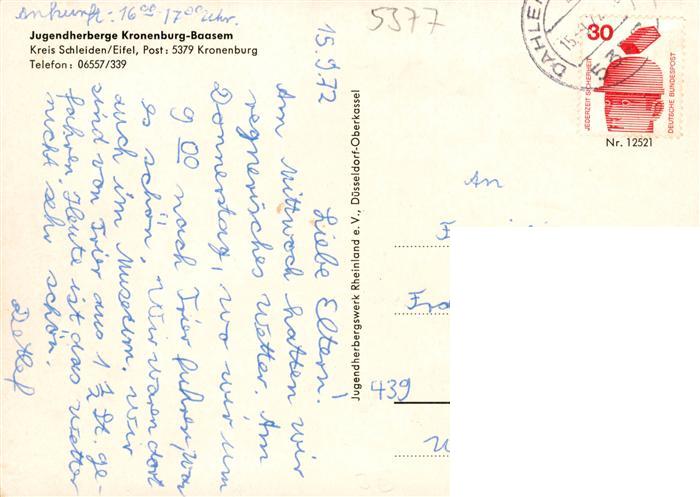 Ankunft - 16⁰⁰-17⁰⁰ Uhr.
Jugendherberge Kronenburg-Baasem
Kreis Schleiden/Eifel, Post: 5379 Kronenburg
Telefon: 06557/339
5377
15.9.72
Liebe Eltern!
Am Mittwoch hatten wir
regnerisches Wetter. Am
Donnerstag, wo wir um
9 00 nach Trier fuhren, war
es schön. Wir waren dort
auch im Museum. Wir
sind von Trier aus 1 ½ St. ge-
fahren. Heute ist das Wetter
nicht sehr schön.
Detlef
Jugendherbergswerk Rheinland e. V., Düsseldorf-Oberkassel
DAHLEM
30
JEDERZEIT SICHERHEIT
DEUTSCHE BUNDESPOST
Nr. 12521
An
439